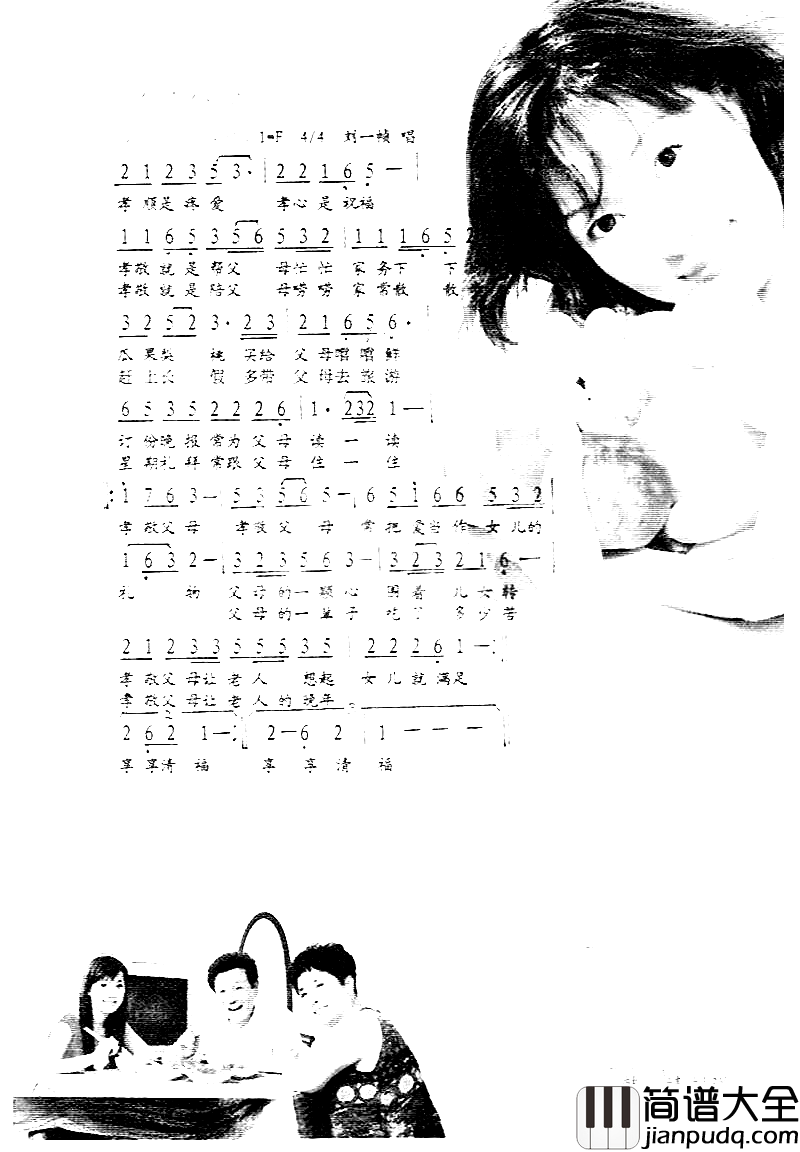 1=F 4/4 刘一祯 唱
2 1 2 3 5 3· | 2 2 1 6 5 — |
孝顺是疼爱 孝心是祝福
1 1 6 5 3 5 6 5 3 2 | 1 1 1 6 5 2
孝敬就是帮父 母忙忙 家务下 下
孝敬就是陪父 母唠唠 家常散 散
3 2 5 2 3· 2 3 | 2 1 6 5 6·
瓜果 桃 买给 父母唱唱鲜
赶上长 假 多带 父母去旅游
6 5 3 5 2 2 2 6 | 1· 2 3 2 1 — |
订份晚报常为父母 读一 读
星期礼拜常跟父母 住一 住
: 1 7 6 3 — | 5 3 5 6 5 — | 6 5 1 6 6 5 3 2
孝敬父母 孝敬父 母 常把爱当作女儿的
1 6 3 2 — | 3 2 3 5 6 3 — | 3 2 3 2 1 6 — —
礼 物 父母的一颗心 围着 儿女转
父母的一辈子 吃了 多少苦
2 1 2 3 3 5 5 5 3 5 | 2 2 2 6 1 — :
孝敬父母让老人 想起 女儿就满足
孝敬父母让老人的晚年
2 6 2 1 — : 2 — 6 2 | 1 — — — |
享享清 福 享 享 清 福
简谱大全
jianpudq.com